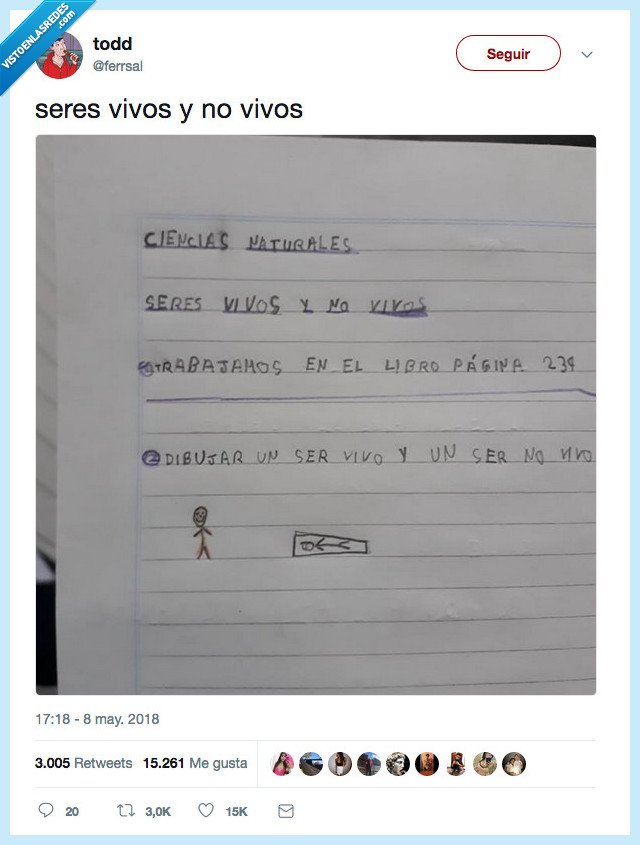 VISTOENLASREDES
.com
todd
@ferrsal
Seguir
seres vivos y no vivos
CIENCIAS NATURALES
SERES VIVOS Y NO VIVOS
TRABAJAMOS EN EL LIBRO PÁGINA 239
2 DIBUJAR UN SER VIVO Y UN SER NO VIVO
17:18 - 8 may. 2018
3.005 Retweets 15.261 Me gusta
20 3,0K 15K